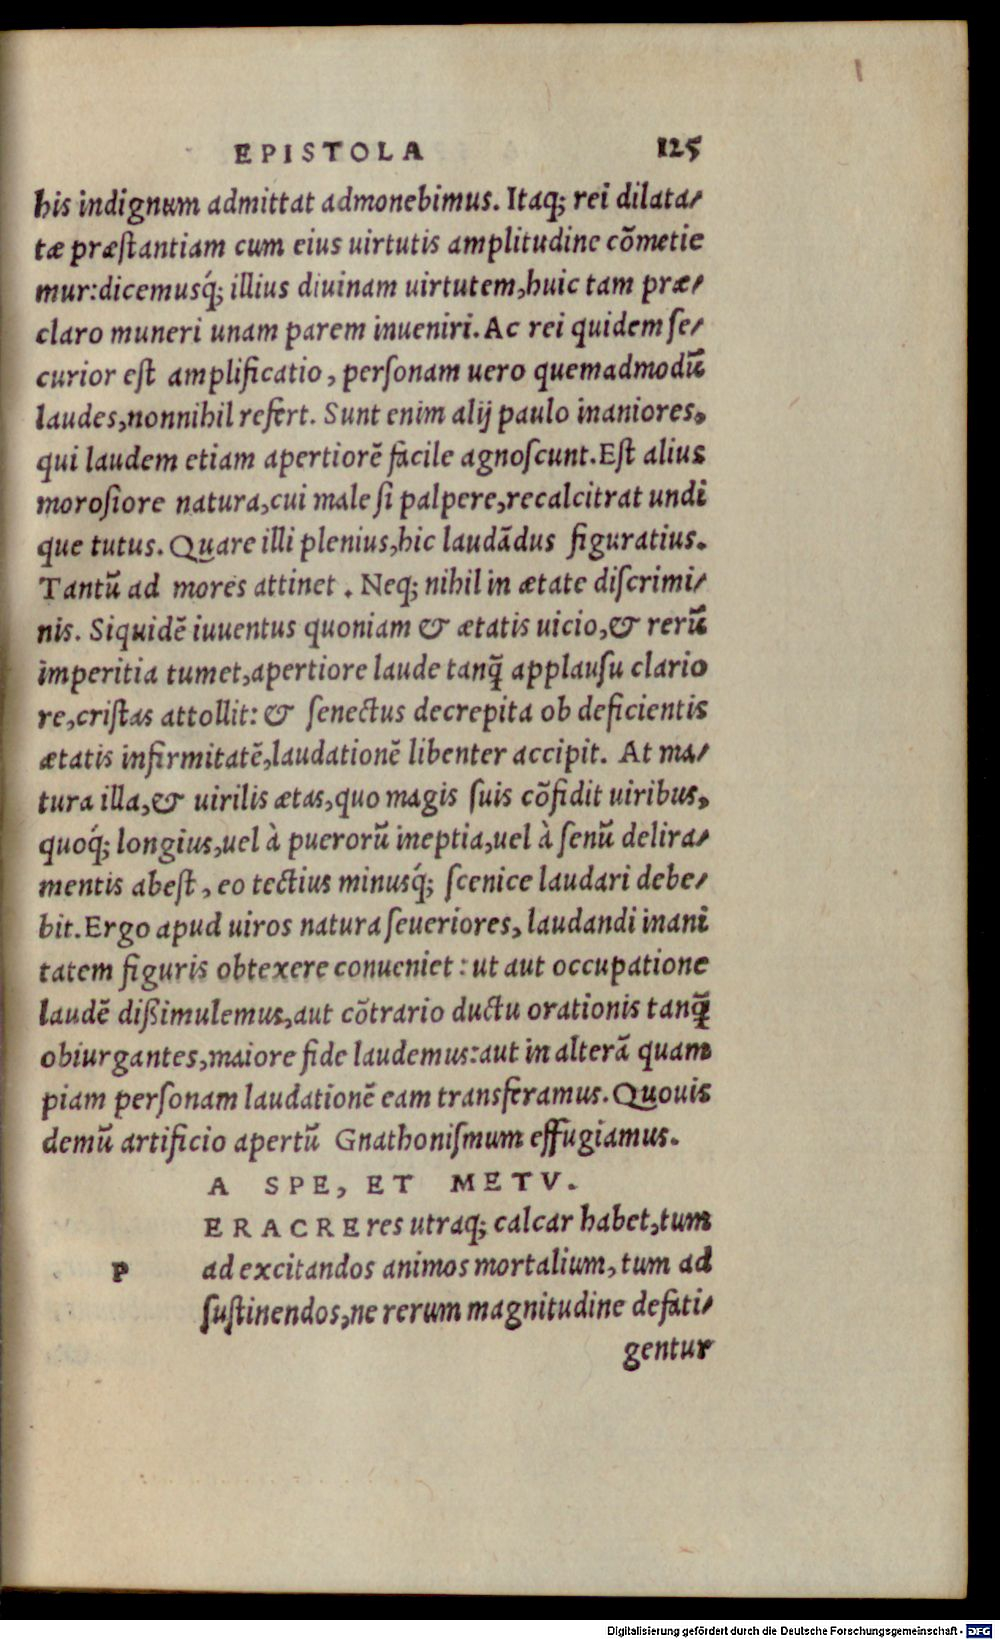 EPISTOLA 125
his indignum admittat admonebimus. Itaq; rei dilata/
tæ præſtantiam cum eius uirtutis amplitudine cõmetie
mur: dicemusq́; illius diuinam uirtutem, huic tam præ/
claro muneri unam parem inueniri. Ac rei quidem ſe/
curior eſt amplificatio, perſonam uero quemadmodũ
laudes, nonnihil refert. Sunt enim alij paulo inaniores,
qui laudem etiam apertiorẽ facile agnoſcunt. Eſt alius
moroſiore natura, cui male ſi palpere, recalcitrat undi
que tutus. Quare illi plenius, hic laudãdus figuratius.
Tantũ ad mores attinet. Neq; nihil in ætate diſcrimi/
nis. Siquidẽ iuuentus quoniam & ætatis uicio, & rerũ
imperitia tumet, apertiore laude tanq̃ applauſu clario
re, criſtas attollit: & ſenectus decrepita ob deficientis
ætatis infirmitatẽ, laudationẽ libenter accipit. At ma/
tura illa, & uirilis ætas, quo magis ſuis cõfidit uiribus,
quoq́; longius, uel à puerorũ ineptia, uel à ſenũ delira/
mentis abeſt, eo tectius minusq́; ſcenice laudari debe/
bit. Ergo apud uiros natura ſeueriores, laudandi inani
tatem figuris obtexere conueniet: ut aut occupatione
laudẽ dißimulemus, aut cõtrario ductu orationis tanq̃
obiurgantes, maiore fide laudemus: aut in alterã quam
piam perſonam laudationẽ eam transferamus. Quouis
demũ artificio apertũ Gnathoniſmum effugiamus.
A SPE, ET METV.
P ERACRE res utraq; calcar habet, tum
ad excitandos animos mortalium, tum ad
ſuſtinendos, ne rerum magnitudine defati/
gentur
Digitalisierung gefördert durch die Deutsche Forschungsgemeinschaft - DFG